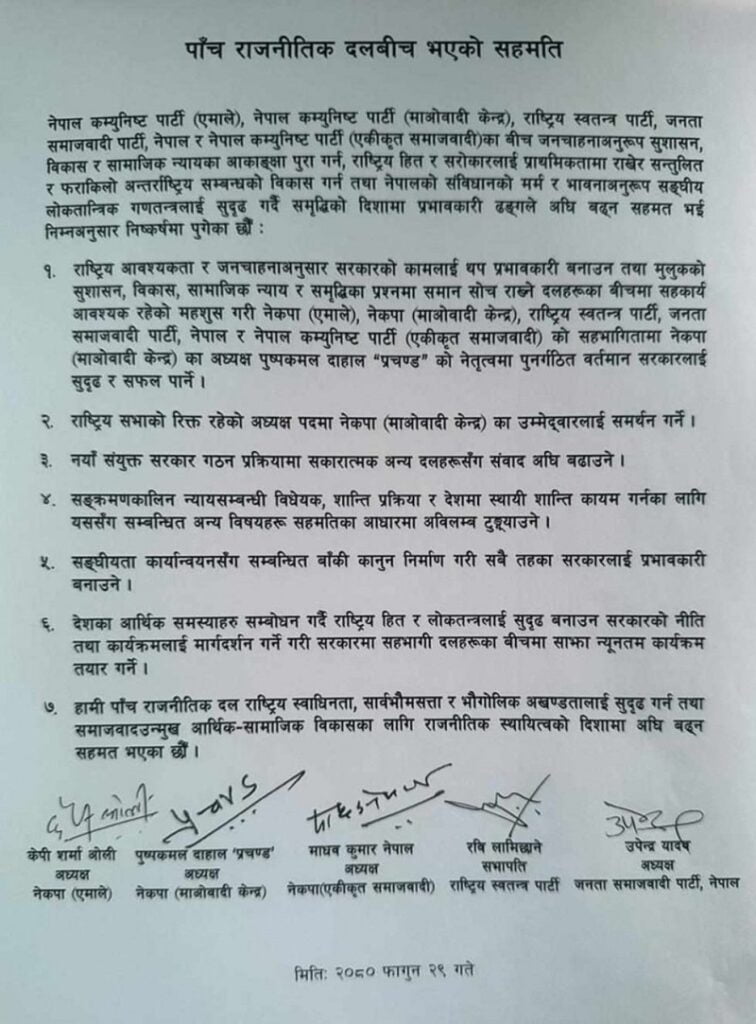 पाँच राजनीतिक दलबीच भएको सहमति
नेपाल कम्युनिष्ट पार्टी (एमाले), नेपाल कम्युनिष्ट पार्टी (माओवादी केन्द्र), राष्ट्रिय स्वतन्त्र पार्टी, जनता
समाजवादी पार्टी, नेपाल र नेपाल कम्युनिष्ट पार्टी (एकीकृत समाजवादी)का बीच जनचाहनाअनुरूप सुशासन,
विकास र सामाजिक न्यायका आकाङ्क्षा पुरा गर्न, राष्ट्रिय हित र सरोकारलाई प्राथमिकतामा राखेर सन्तुलित
र फराकिलो अन्तर्राष्ट्रिय सम्बन्धको विकास गर्न तथा नेपालको संविधानको मर्म र भावनाअनुरूप सङ्घीय
लोकतान्त्रिक गणतन्त्रलाई सुदृढ गर्दै समृद्धिको दिशामा प्रभावकारी ढङ्गले अघि बढ्न सहमत भई
निम्नअनुसार निष्कर्षमा पुगेका छौँ :
१. राष्ट्रिय आवश्यकता र जनचाहनाअनुसार सरकारको कामलाई थप प्रभावकारी बनाउन तथा मुलुकको
सुशासन, विकास, सामाजिक न्याय र समृद्धिका प्रश्नमा समान सोच राख्ने दलहरूका बीचमा सहकार्य
आवश्यक रहेको महशुस गरी नेकपा (एमाले), नेकपा (माओवादी केन्द्र), राष्ट्रिय स्वतन्त्र पार्टी, जनता
समाजवादी पार्टी, नेपाल र नेपाल कम्युनिष्ट पार्टी (एकीकृत समाजवादी) को सहभागितामा नेकपा
(माओवादी केन्द्र) का अध्यक्ष पुष्पकमल दाहाल “प्रचण्ड” को नेतृत्वमा पुनर्गठित वर्तमान सरकारलाई
सुदृढ र सफल पार्ने ।
२. राष्ट्रिय सभाको रिक्त रहेको अध्यक्ष पदमा नेकपा (माओवादी केन्द्र) का उम्मेद्‌वारलाई समर्थन गर्ने ।
३. नयाँ संयुक्त सरकार गठन प्रक्रियामा सकारात्मक अन्य दलहरूसँग संवाद अघि बढाउने ।
४. सङ्क्रमणकालिन न्यायसम्बन्धी विधेयक, शान्ति प्रक्रिया र देशमा स्थायी शान्ति कायम गर्नका लागि
यससँग सम्बन्धित अन्य विषयहरू सहमतिका आधारमा अविलम्ब टुङ्ग्याउने ।
५. सङ्घीयता कार्यान्वयनसँग सम्बन्धित बाँकी कानुन निर्माण गरी सबै तहका सरकारलाई प्रभावकारी
बनाउने ।
६. देशका आर्थिक समस्याहरु सम्बोधन गर्दै राष्ट्रिय हित र लोकतन्त्रलाई सुदृढ बनाउन सरकारको नीति
तथा कार्यक्रमलाई मार्गदर्शन गर्ने गरी सरकारमा सहभागी दलहरूका बीचमा साझा न्यूनतम कार्यक्रम
तयार गर्ने ।
७. हामी पाँच राजनीतिक दल राष्ट्रिय स्वाधिनता, सार्वभौमसत्ता र भौगोलिक अखण्डतालाई सुदृढ गर्न तथा
समाजवादउन्मुख आर्थिक-सामाजिक विकासका लागि राजनीतिक स्थायित्वको दिशामा अघि बढ्न
सहमत भएका छौँ ।
केपी शर्मा ओली पुष्पकमल दाहाल ‘प्रचण्ड’ माधव कुमार नेपाल रबि लामिछाने उपेन्द्र यादव
अध्यक्ष अध्यक्ष अध्यक्ष सभापति अध्यक्ष
नेकपा (एमाले) नेकपा (माओवादी केन्द्र) नेकपा(एकीकृत समाजवादी) राष्ट्रिय स्वतन्त्र पार्टी जनता समाजवादी पार्टी, नेपाल
मितिः २०८० फागुन २९ गते